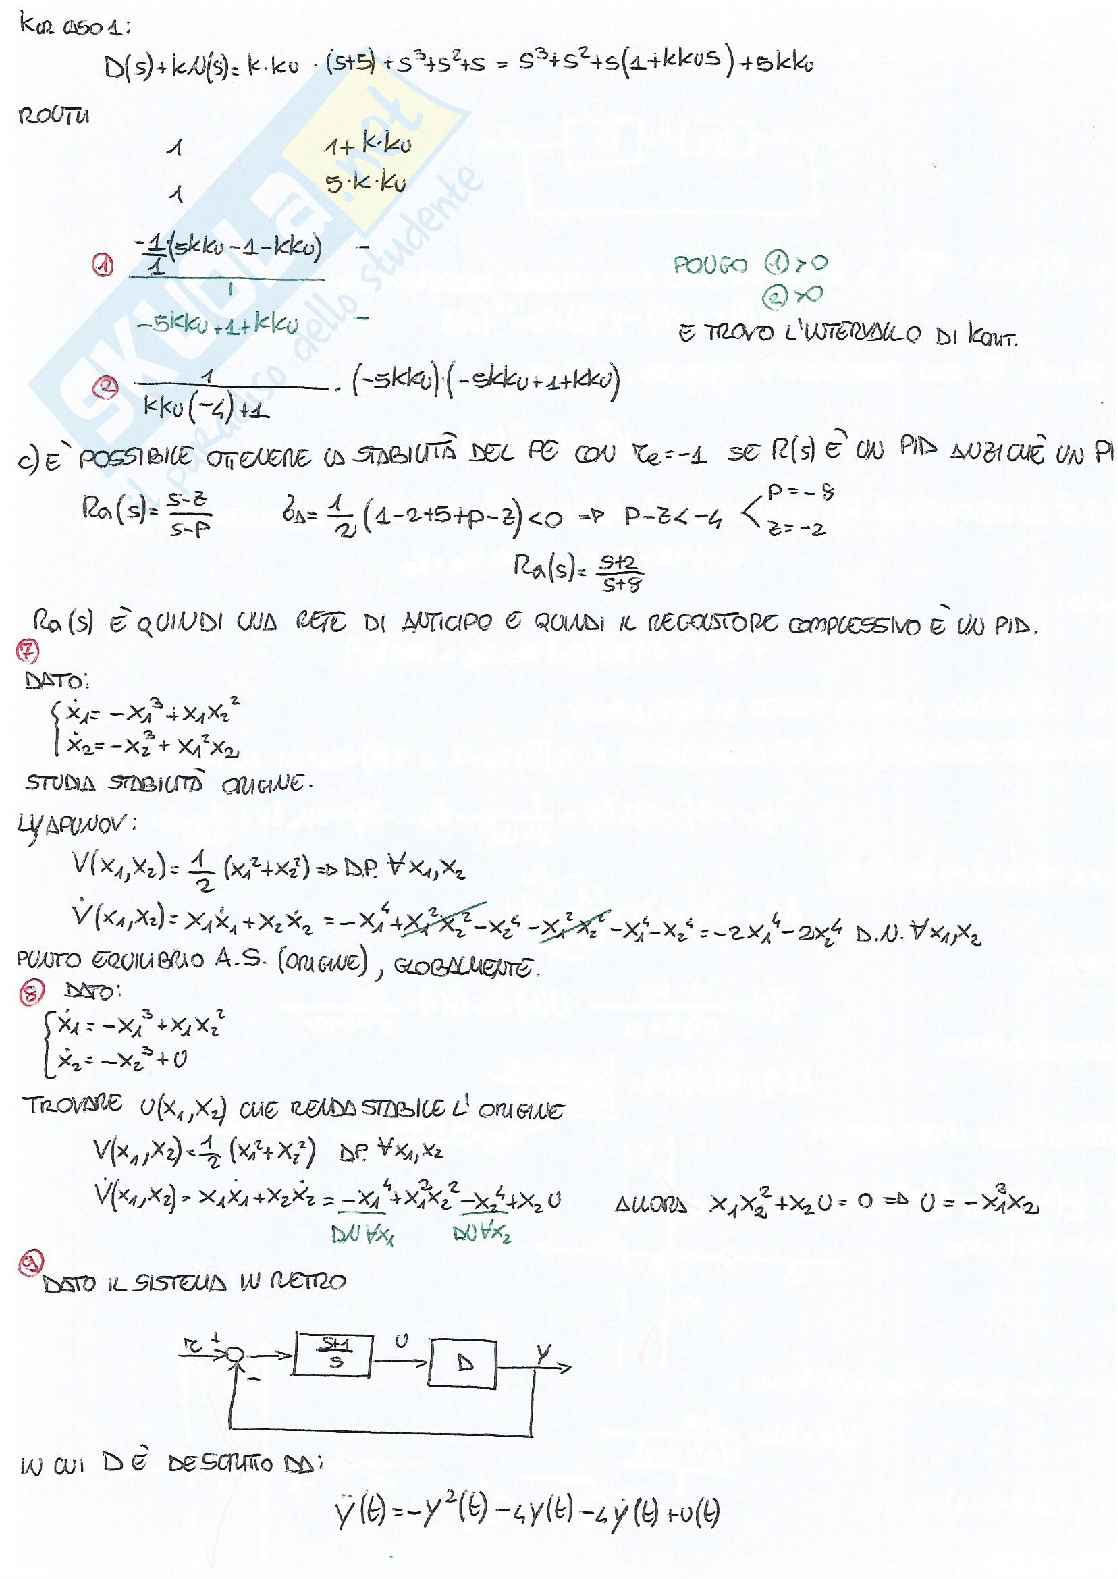 kcr caso 1:
D(s)+kN(s)= k·ku·(s+5)+s³+s²+s = s³+s²+s(1+kkus)+5kku
ROUTH
1 1+k·ku
1 5·k·ku
① -1/1 (5kku-1-kku) / 1 -
-5kku+1+kku -
PONGO ①>0
②>0
E TROVO L'INTERVALLO DI kcrit.
② 1/(kku(-4)+1) · (-5kku)·(-5kku+1+kku)
c) È POSSIBILE OTTENERE LA STABILITÀ DEL PE CON re=-1 SE R(s) È UN PID ANZICHÈ UN PI
Ra(s)= (s-z)/(s-p) δA= 1/2 (1-2+5+p-z)<0 => p-z<-4 < p=-8
z=-2
Ra(s)= (s+2)/(s+8)
Ra(s) È QUINDI UNA RETE DI ANTICIPO E QUINDI IL REGOLATORE COMPLESSIVO È UN PID.
⑦
DATO:
ẋ₁= -x₁³+x₁x₂²
ẋ₂= -x₂³+x₁²x₂
STUDIA STABILITÀ ORIGINE.
LYAPUNOV:
V(x₁,x₂)= 1/2 (x₁²+x₂²) => D.P. ∀x₁,x₂
V̇(x₁,x₂)= x₁ẋ₁+x₂ẋ₂ = -x₁⁴+x₁²x₂²-x₂⁴-x₁²x₂²-x₁⁴-x₂⁴ = -2x₁⁴-2x₂⁴ D.N. ∀x₁,x₂
PUNTO EQUILIBRIO A.S. (ORIGINE), GLOBALMENTE.
⑧ DATO:
ẋ₁= -x₁³+x₁x₂²
ẋ₂= -x₂³+U
TROVARE U(x₁,x₂) CHE RENDA STABILE L'ORIGINE
V(x₁,x₂)= 1/2 (x₁²+x₂²) DP. ∀x₁,x₂
V̇(x₁,x₂)= x₁ẋ₁+x₂ẋ₂ = -x₁⁴+x₁²x₂²-x₂⁴+x₂U ALLORA x₁x₂²+x₂U=0 => U=-x₁³x₂
DN ∀x₁ DN ∀x₂
⑨
DATO IL SISTEMA IN RETRO
r + - (s+1)/s U D Y
IN CUI D È DESCRITTO DA:
ÿ(t)= -y²(t)-4y(t)-4ẏ(t)+u(t)